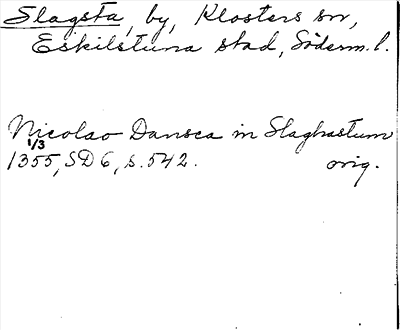 Slagsta, by, Klosters sn,
Eskilstuna stad, Söderm. l.
Nicolao Dansca in Slaghastum
1/3
1355, SD 6, s. 542. orig.